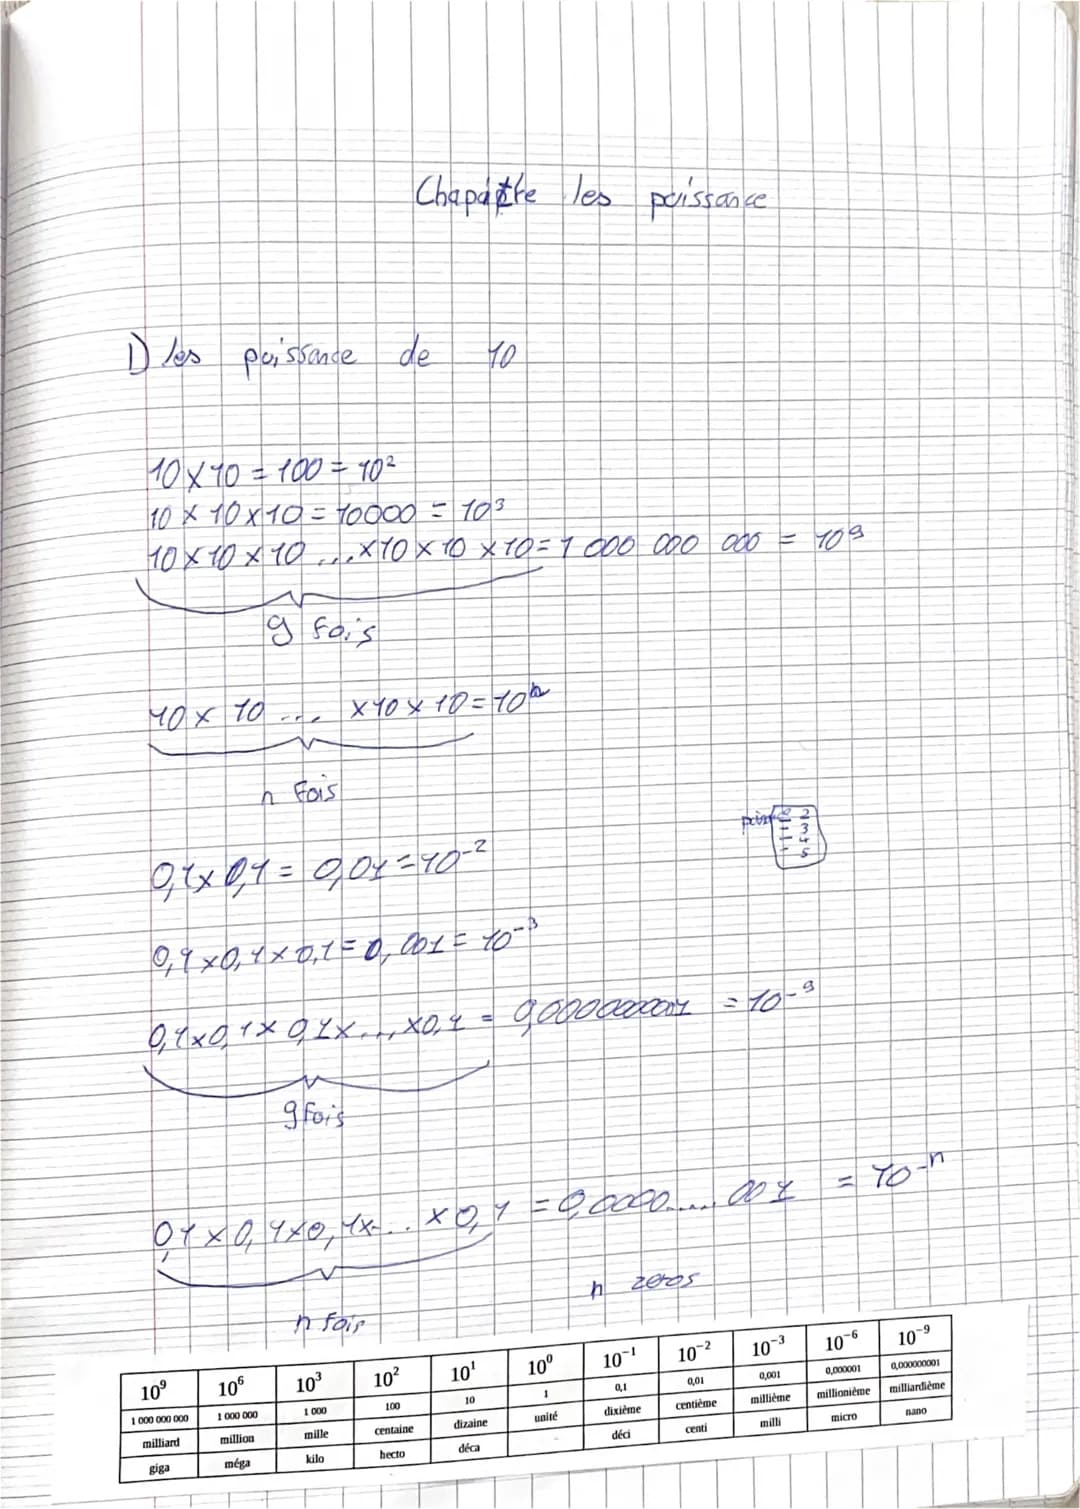 Chapitre les puissance
I) les puissance de 10
10 × 10 = 100 = 10²
10 × 10 × 10 = 10000 = 10³
10 × 10 × 10 ... × 10 × 10 × 10 = 1 000 000 000 = 10⁹
9 fois
10 × 10 ... × 10 × 10 = 10ⁿ
n fois
2
3
4
5
0,1 × 0,1 = 0,01 = 10⁻²
0,1 × 0,1 × 0,1 = 0,001 = 10⁻³
0,1 × 0,1 × 0,1 × ... × 0,1 = 0,000000001 = 10⁻⁹
9 fois
0,1 × 0,1 × 0,1 × ... × 0,1 = 0,0000.....001 = 10⁻ⁿ
n zeros
n fois
10⁹ 10⁶ 10³ 10² 10¹ 10⁰ 10⁻¹ 10⁻² 10⁻³ 10⁻⁶ 10⁻⁹
1 000 000 000 1 000 000 1 000 100 10 1 0,1 0,01 0,001 0,000001 0,000000001
milliard million mille centaine dizaine unité dixième centième millième millionième milliardième
giga méga kilo hecto déca déci centi milli micro nano